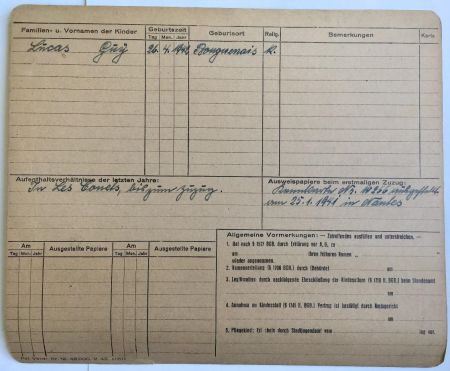 Familien- u. Vornamen der Kinder Geburtszeit Geburtsort Relig. Bemerkungen Karte
Tag Mon. Jahr
Lucas Guy 26. 4. 1942 Bouguenais K.
Aufenthaltsverhältnisse der letzten Jahre:
In Les Couets, bis zum Zuzug.
Ausweispapiere beim erstmaligen Zuzug:
Kennkarte No. ausgestellt
am 25.1.1941 in Nantes
Am Ausgestellte Papiere Am Ausgestellte Papiere
Tag Mon. Jahr Tag Mon. Jahr
Allgemeine Vormerkungen: — Zutreffendes ausfüllen und unterstreichen. —
1. Hat nach § 1577 BGB. durch Erklärung vor d.
am ihren früheren Namen
wieder angenommen.
2. Namenserteilung (§ 1706 BGB.) durch (Behörde) am
3. Legitimation durch nachfolgende Eheschließung der Kindeseltern (§ 1719 BGB.) beim Standesamt
am
4. Annahme an Kindesstatt (§ 1741 BGB.) Vertrag ist bestätigt durch Amtsgericht
am
5. Pflegekind: Erl. durch Stadtjugendamt vom lag vor.